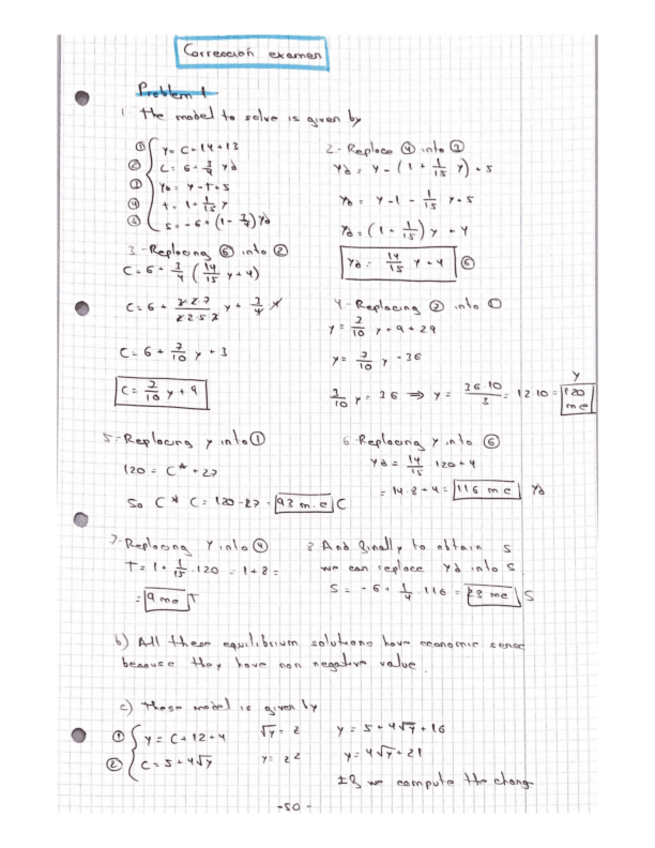 Corrección examen
Problem 1
1. The model to solve is given by
① y = C + 14 + 13
② C = 6 + 3/4 yd
③ yd = y - t + 5
④ t = 1 + 1/15 y
⑤ S = -6 + (1 - 3/4) yd
2.- Replace ④ into ③
yd = y - (1 + 1/15 y) + 5
yd = y - 1 - 1/15 y + 5
yd = (1 - 1/15) y + 4
yd = 14/15 y + 4 ⑥
3.- Replacing ⑥ into ②
C = 6 + 3/4 (14/15 y + 4)
C = 6 + y + 3/4 4
C = 6 + 7/10 y + 3
C = 7/10 y + 9
4.- Replacing ② into ①
y = 7/10 y + 9 + 29
y = 7/10 y + 36
3/10 y = 36 ⇒ y = 36·10/3 = 12·10 = 120 me y
5.- Replacing y into ①
120 = C* + 27
So C* C = 120 - 27 = 93 m.e C
6.- Replacing y into ⑥
yd = 14/15 120 + 4
= 14·8 + 4 = 116 m e yd
7- Replacing Y into ④
T = 1 + 1/15 · 120 = 1 + 8 =
= 9 me T
8. And finally to obtain S
we can replace yd into S
S = -6 + 1/4 · 116 = 23 me S
b) All these equilibrium solutions have economic sense
because they have non negative value.
c) These model is given by
① y = C + 12 + 4
② C = 5 + 4√y
√y = z
y = z²
y = 5 + 4√y + 16
y = 4√y + 21
If we compute the chang
- 50 -